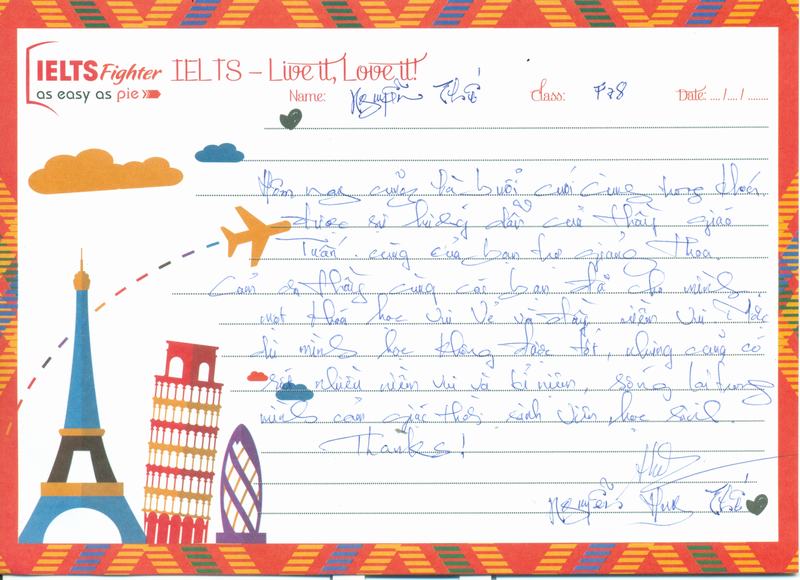 IELTS Fighter IELTS – Live it, Love it!
as easy as pie
Name: Nguyễn Thế Class: F78 Date: .../.../......
Hôm nay cũng là buổi cuối cùng trong khoá
được sự hướng dẫn của thầy giáo
Tuấn. cùng của bạn trợ giảng Thoa.
Cảm ơn thầy cùng các bạn đã cho mình
một khoá học vui vẻ và đầy niềm vui. Mặc
dù mình học không được tốt, nhưng cũng có
rất nhiều niềm vui và kỉ niệm, sống lại trong
mình cảm giác thời sinh viên, học sinh.
Thanks!
Nguyễn Thế